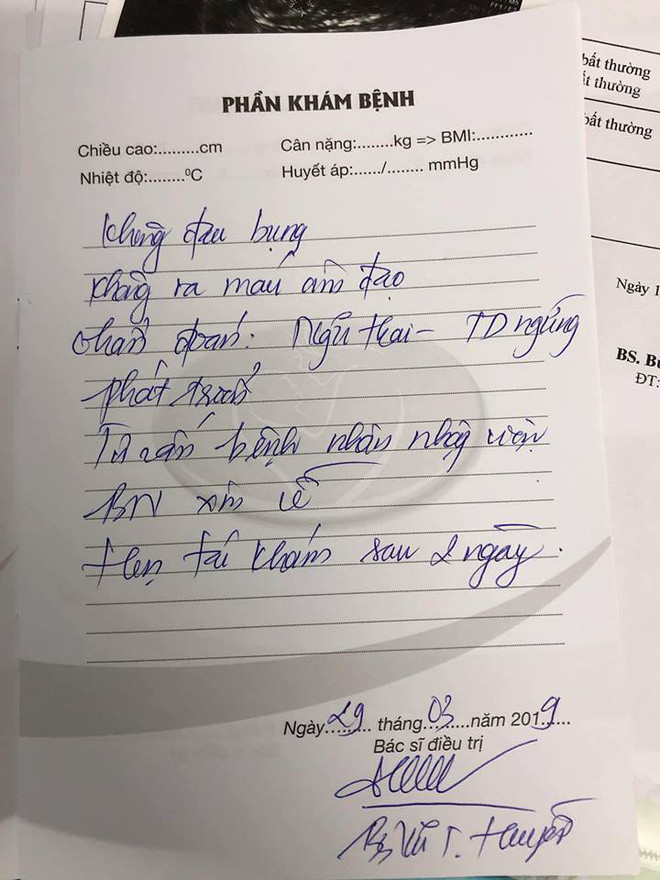 bất thường
ất thường
bất thường
PHẦN KHÁM BỆNH
Chiều cao:.........cm Cân nặng:........kg => BMI:............
Nhiệt độ:........⁰C Huyết áp:....../........ mmHg
Không đau bụng
Không ra máu âm đạo
Chẩn đoán: Ngũ thai - TD ngừng
phát triển
Tư vấn bệnh nhân nhập viện
BN xin về
Hẹn tái khám sau 2 ngày.
Ngày 1
BS. Bù
ĐT:
Ngày 29 tháng 03 năm 2019
Bác sĩ điều trị